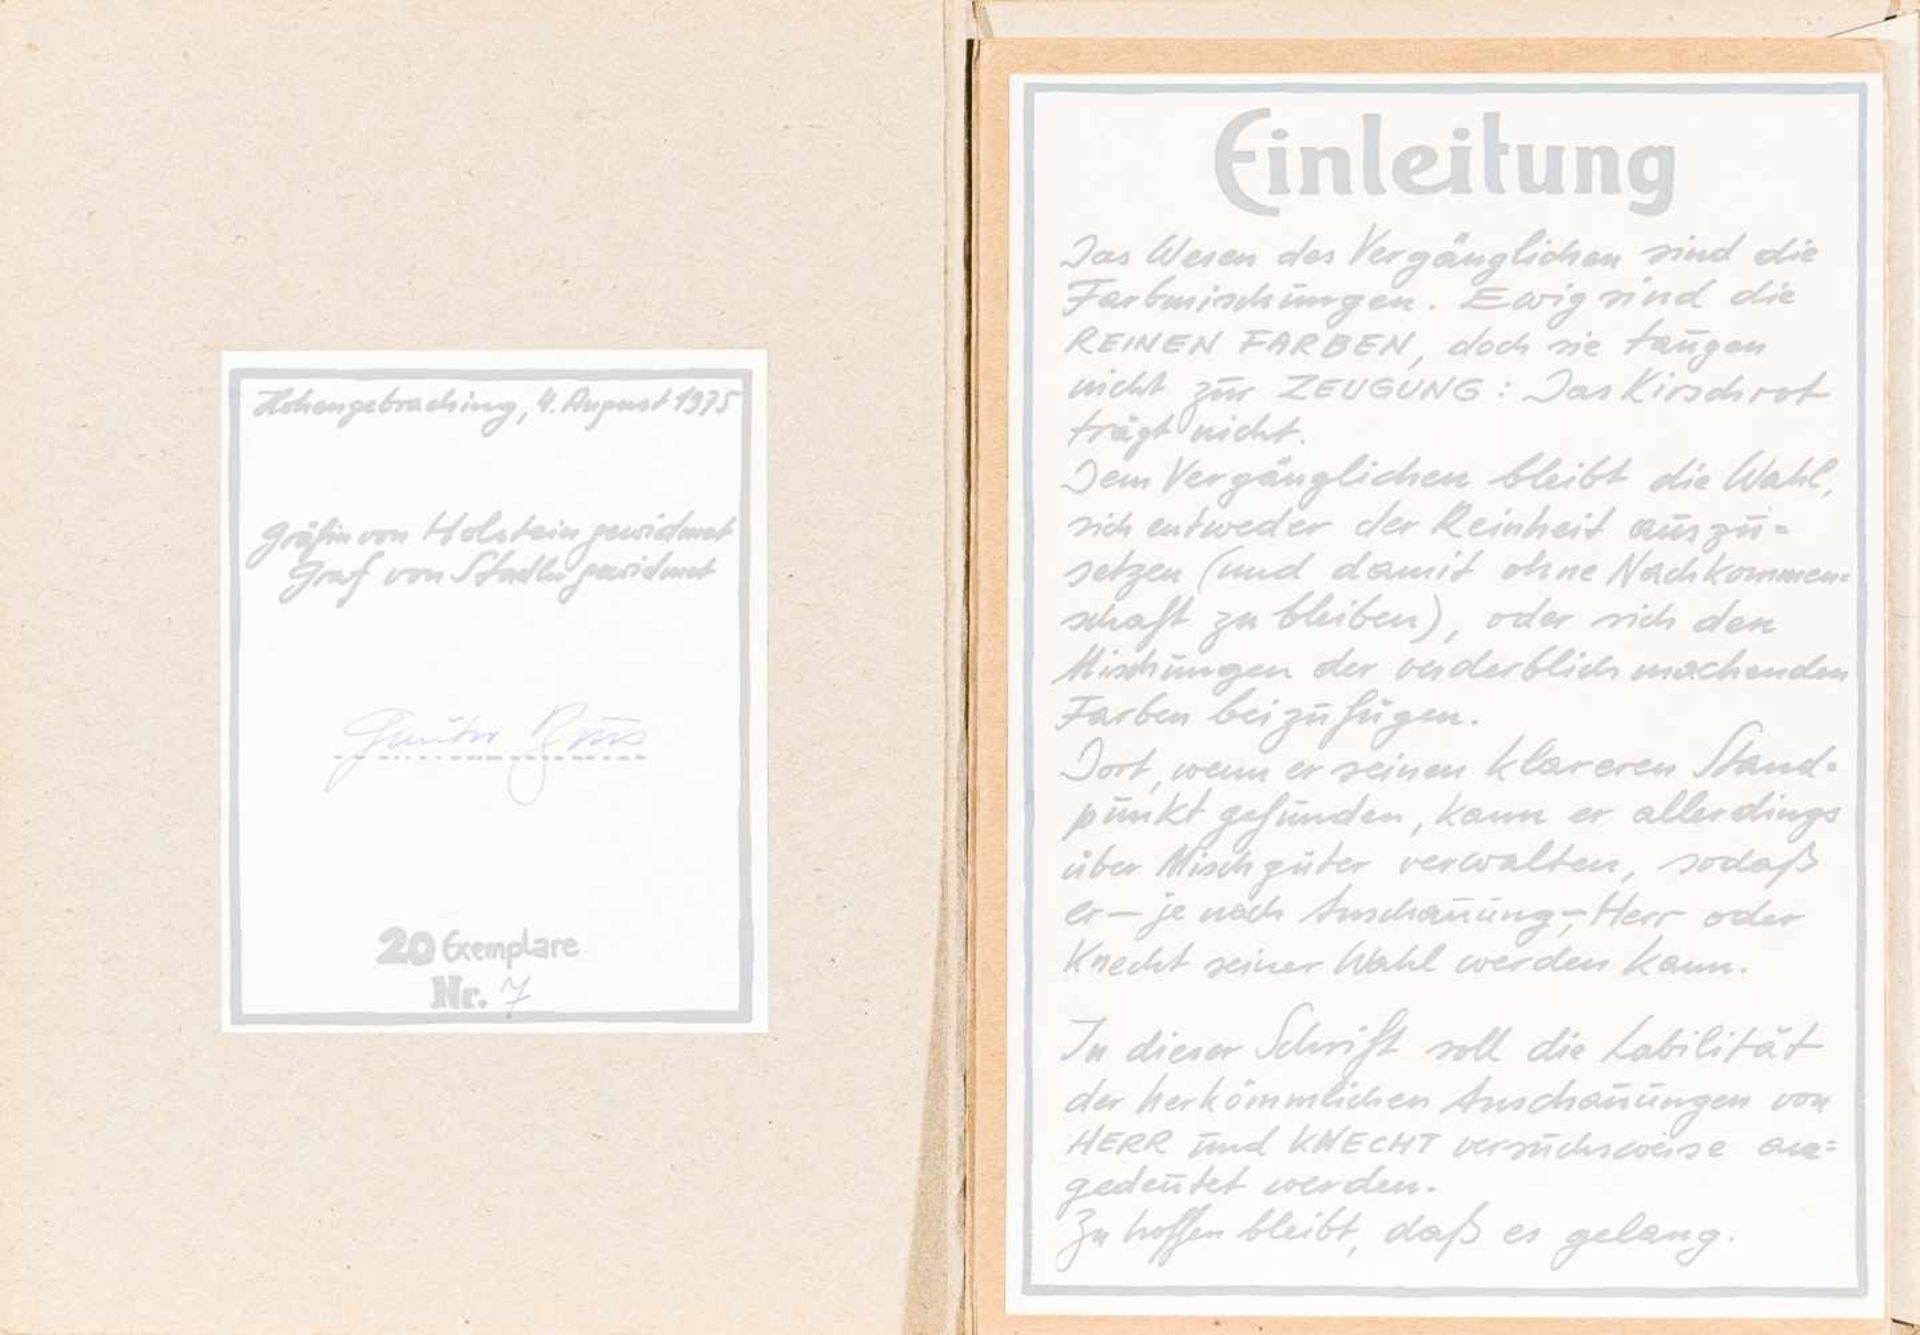 Hohengebraching, 4. August 1975
Gräfin von Holstein gewidmet
Graf von Stadler gewidmet
Günter Brus
20 Exemplare
Nr. 7
Einleitung
Das Wesen des Vergänglichen sind die
Farbmischungen. Ewig sind die
REINEN FARBEN, doch sie taugen
nicht zur ZEUGUNG: Das Kirschrot
trägt nicht.
Dem Vergänglichen bleibt die Wahl,
sich entweder der Reinheit auszu=
setzen (und damit ohne Nachkommen=
schaft zu bleiben), oder sich den
Mischungen der verderblich machenden
Farben beizufügen.
Dort, wenn er seinen klareren Stand=
punkt gefunden, kann er allerdings
über Mischgüter verwalten, sodaß
er – je nach Anschauung –, Herr oder
Knecht seiner Wahl werden kann.
In dieser Schrift soll die Labilität
der herkömmlichen Anschauungen von
HERR und KNECHT versuchsweise an=
gedeutet werden.
Zu hoffen bleibt, daß es gelang.